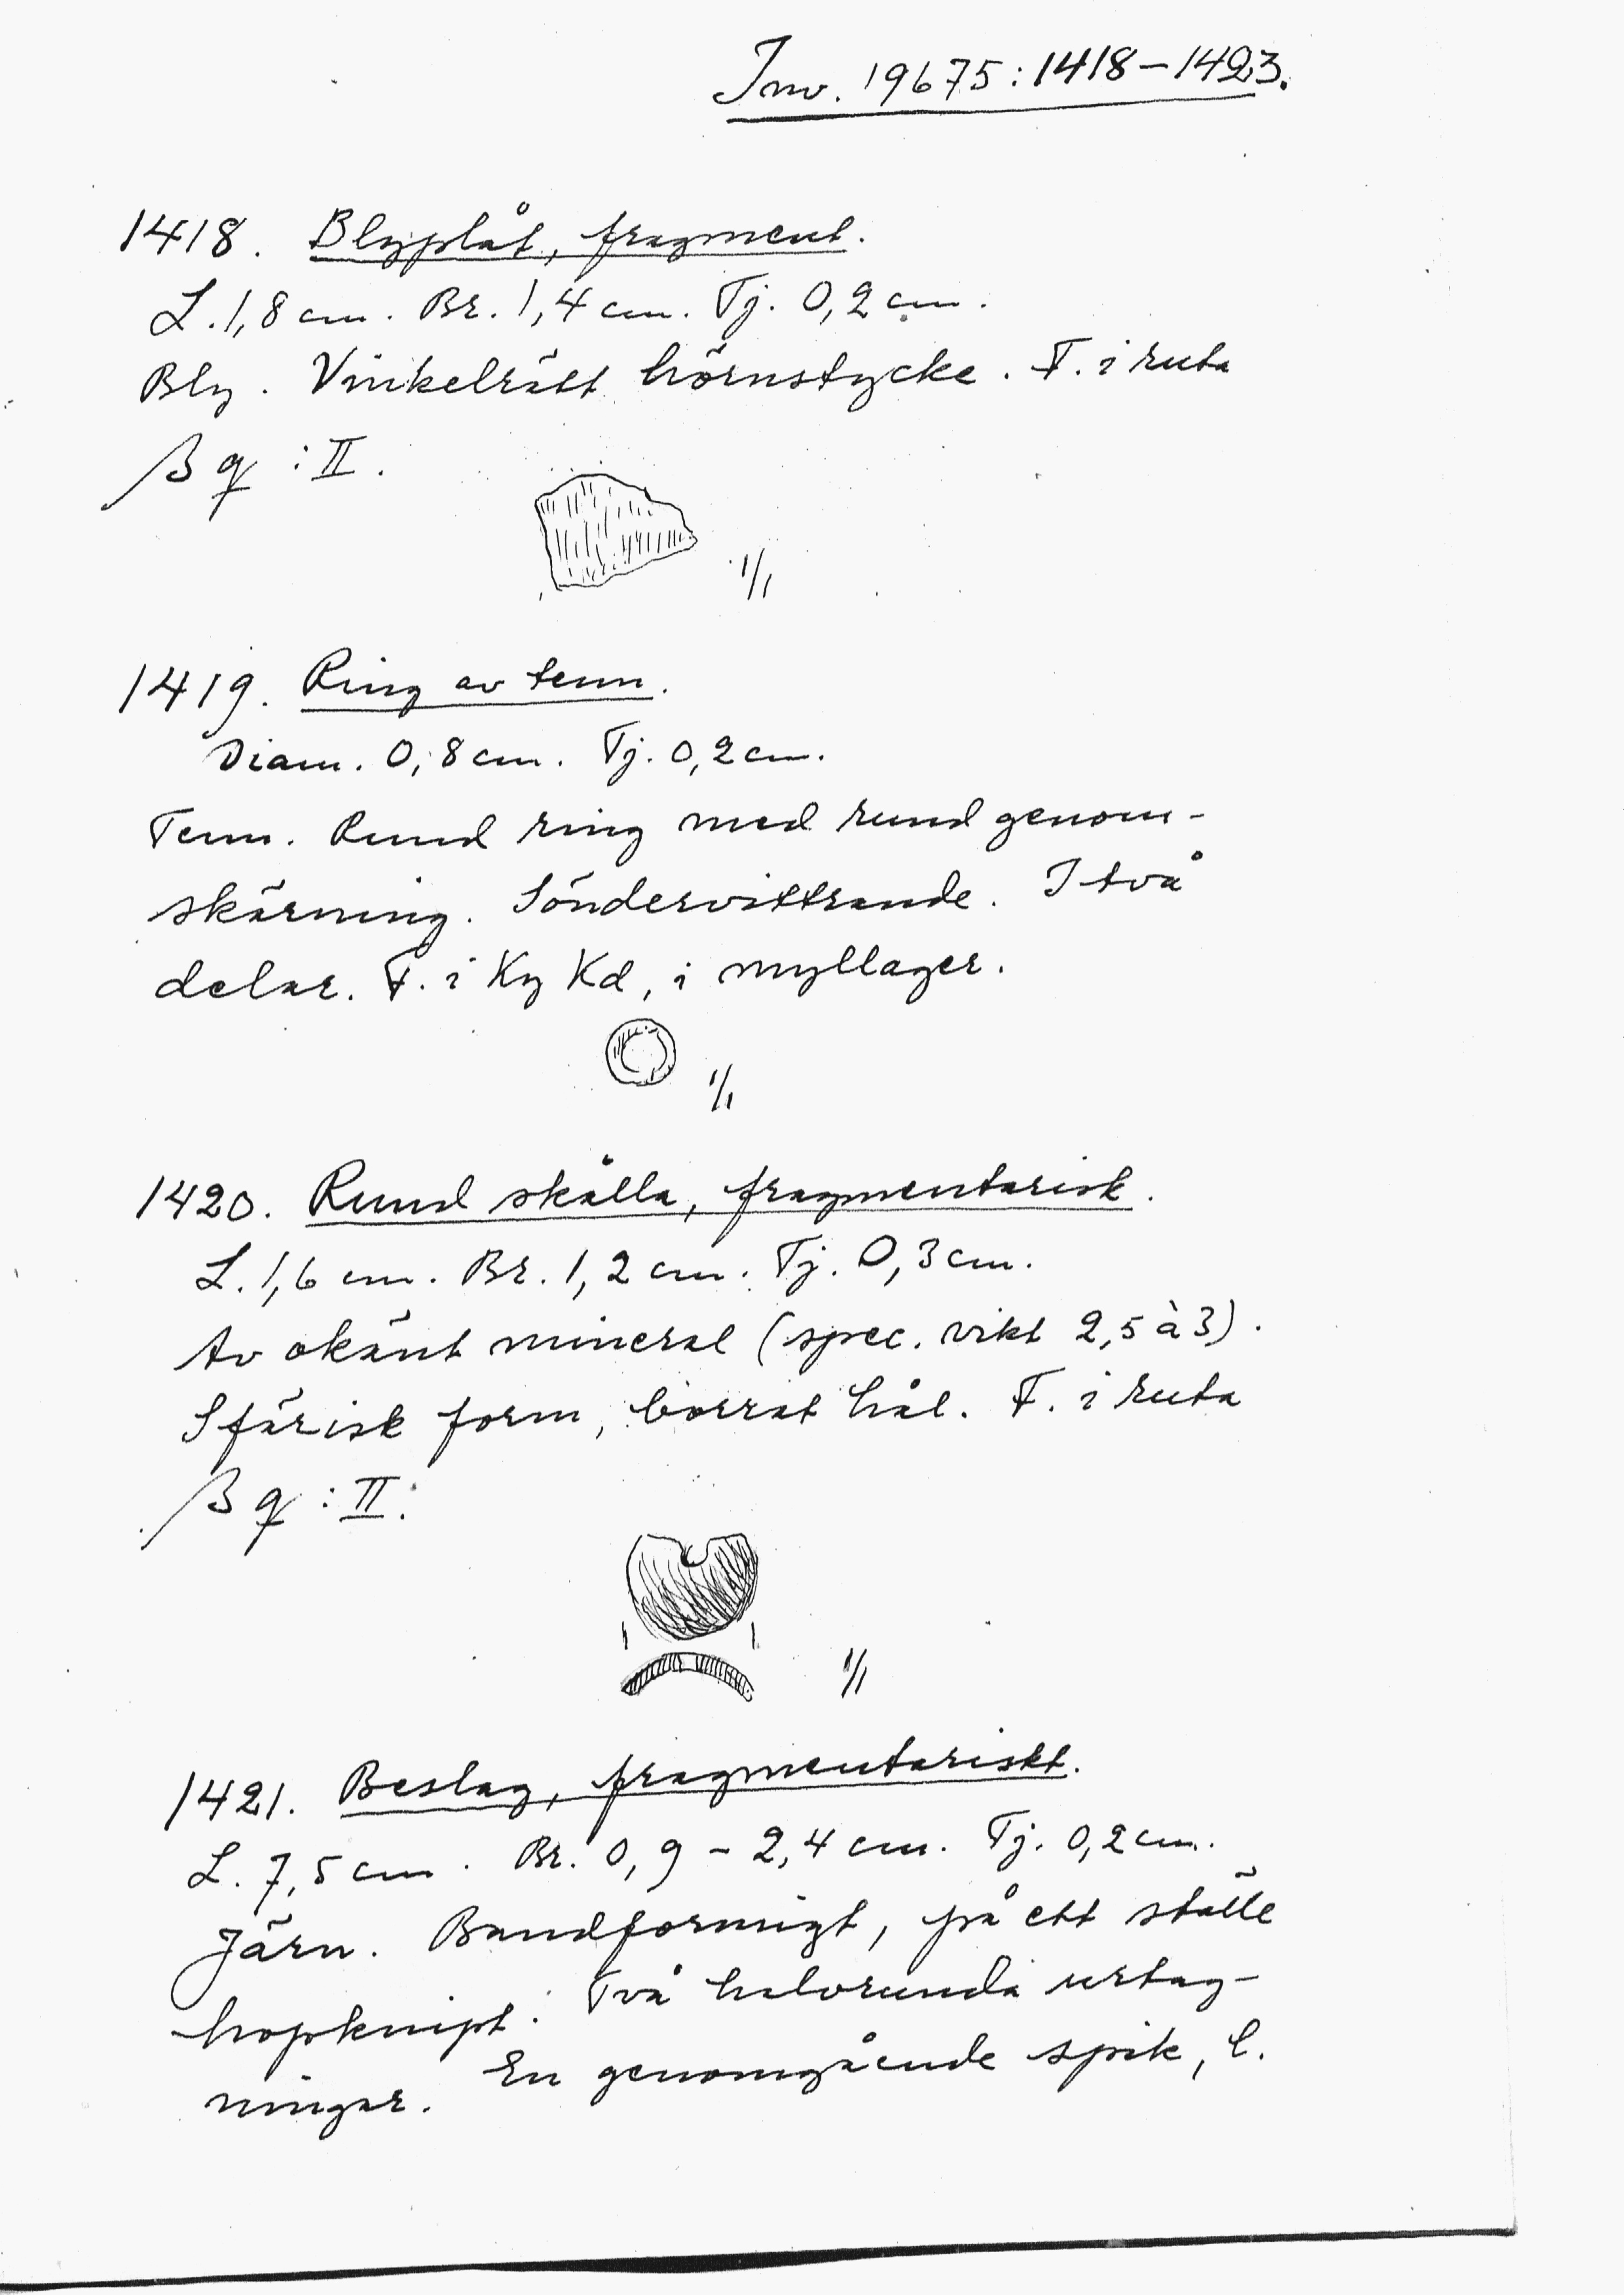 Inv. 19675:1418–1423.
1418. Blyplåt, fragment.
L. 1,8 cm. Br. 1,4 cm. Tj. 0,2 cm.
Bly. Vinkelrätt hörnstycke. F. i ruta
β q : II.
1/1
1419. Ring av tenn.
Diam. 0,8 cm. Tj. 0,2 cm.
Tenn. Rund ring med rund genom-
skärning. Söndervittrande. I två
delar. F. i Ky Kd, i myllager.
1/1
1420. Rund skålla, fragmentarisk.
L. 1,6 cm. Br. 1,2 cm. Tj. 0,3 cm.
Av okänt mineral (spec. vikt 2,5 à 3).
Sfärisk form, borrat hål. F. i ruta
β q : II.
1/1
1421. Beslag, fragmentariskt.
L. 7,5 cm. Br. 0,9 – 2,4 cm. Tj. 0,2 cm.
Järn. Bandformigt, på ett ställe
hopknipt. Två halvrunda urtag-
ningar. En genomgående spik, l.